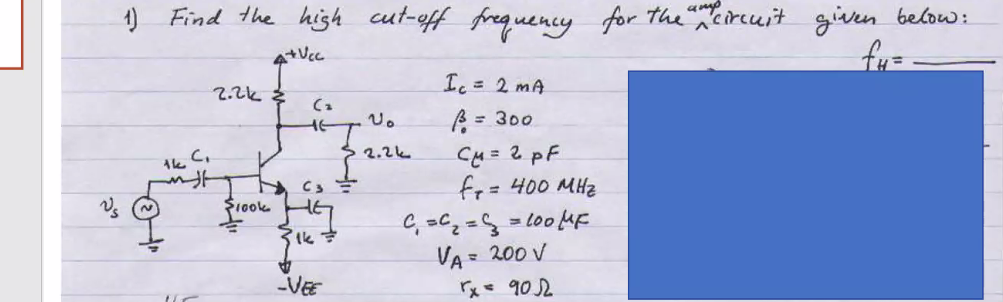 1) Find the high cut-off frequency for the amp circuit given below:
fH = ______
+VCC
2.2k
C2
Vo
2.2k
1k C1
Vs
100k
C3
1k
-VEE
Ic = 2 mA
β0 = 300
Cμ = 2 pF
fT = 400 MHz
C1 = C2 = C3 = 100 μF
VA = 200 V
rx = 90 Ω